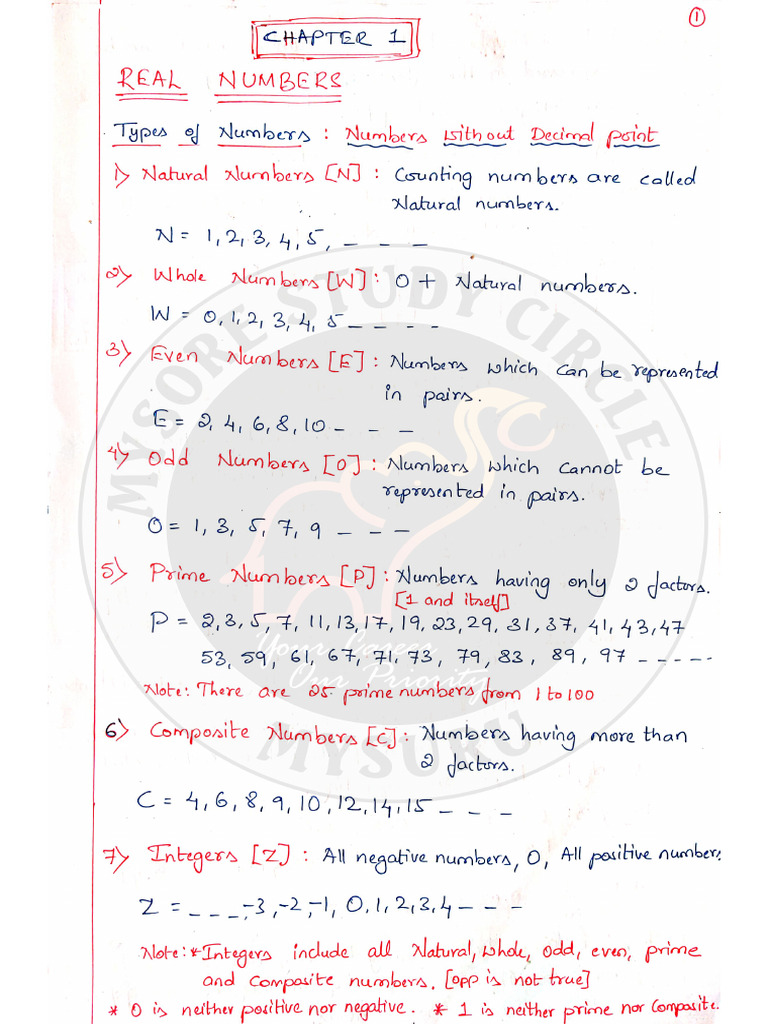 ①
CHAPTER 1
REAL NUMBERS
Types of Numbers : Numbers without Decimal point
1) Natural Numbers [N] : Counting numbers are called
Natural numbers.
N = 1, 2, 3, 4, 5, - - -
2) Whole Numbers [W] : 0 + Natural numbers.
W = 0, 1, 2, 3, 4, 5 - - - -
3) Even Numbers [E] : Numbers which can be represented
in pairs.
E = 2, 4, 6, 8, 10 - - -
4) Odd Numbers [O] : Numbers which cannot be
represented in pairs.
O = 1, 3, 5, 7, 9 - - -
5) Prime Numbers [P] : Numbers having only 2 factors.
[1 and itself]
P = 2, 3, 5, 7, 11, 13, 17, 19, 23, 29, 31, 37, 41, 43, 47
53, 59, 61, 67, 71, 73, 79, 83, 89, 97 - - - - -
Note: There are 25 prime numbers from 1 to 100
6) Composite Numbers [C] : Numbers having more than
2 factors.
C = 4, 6, 8, 9, 10, 12, 14, 15 - - -
7) Integers [Z] : All negative numbers, 0, All positive numbers
Z = - - - , -3, -2, -1, 0, 1, 2, 3, 4 - - -
Note: * Integers include all Natural, whole, odd, even, prime
and composite numbers. [opp is not true]
* 0 is neither positive nor negative. * 1 is neither prime nor Composite.
MYSORE STUDY CIRCLE
Your Career
Our Priority
MYSURU